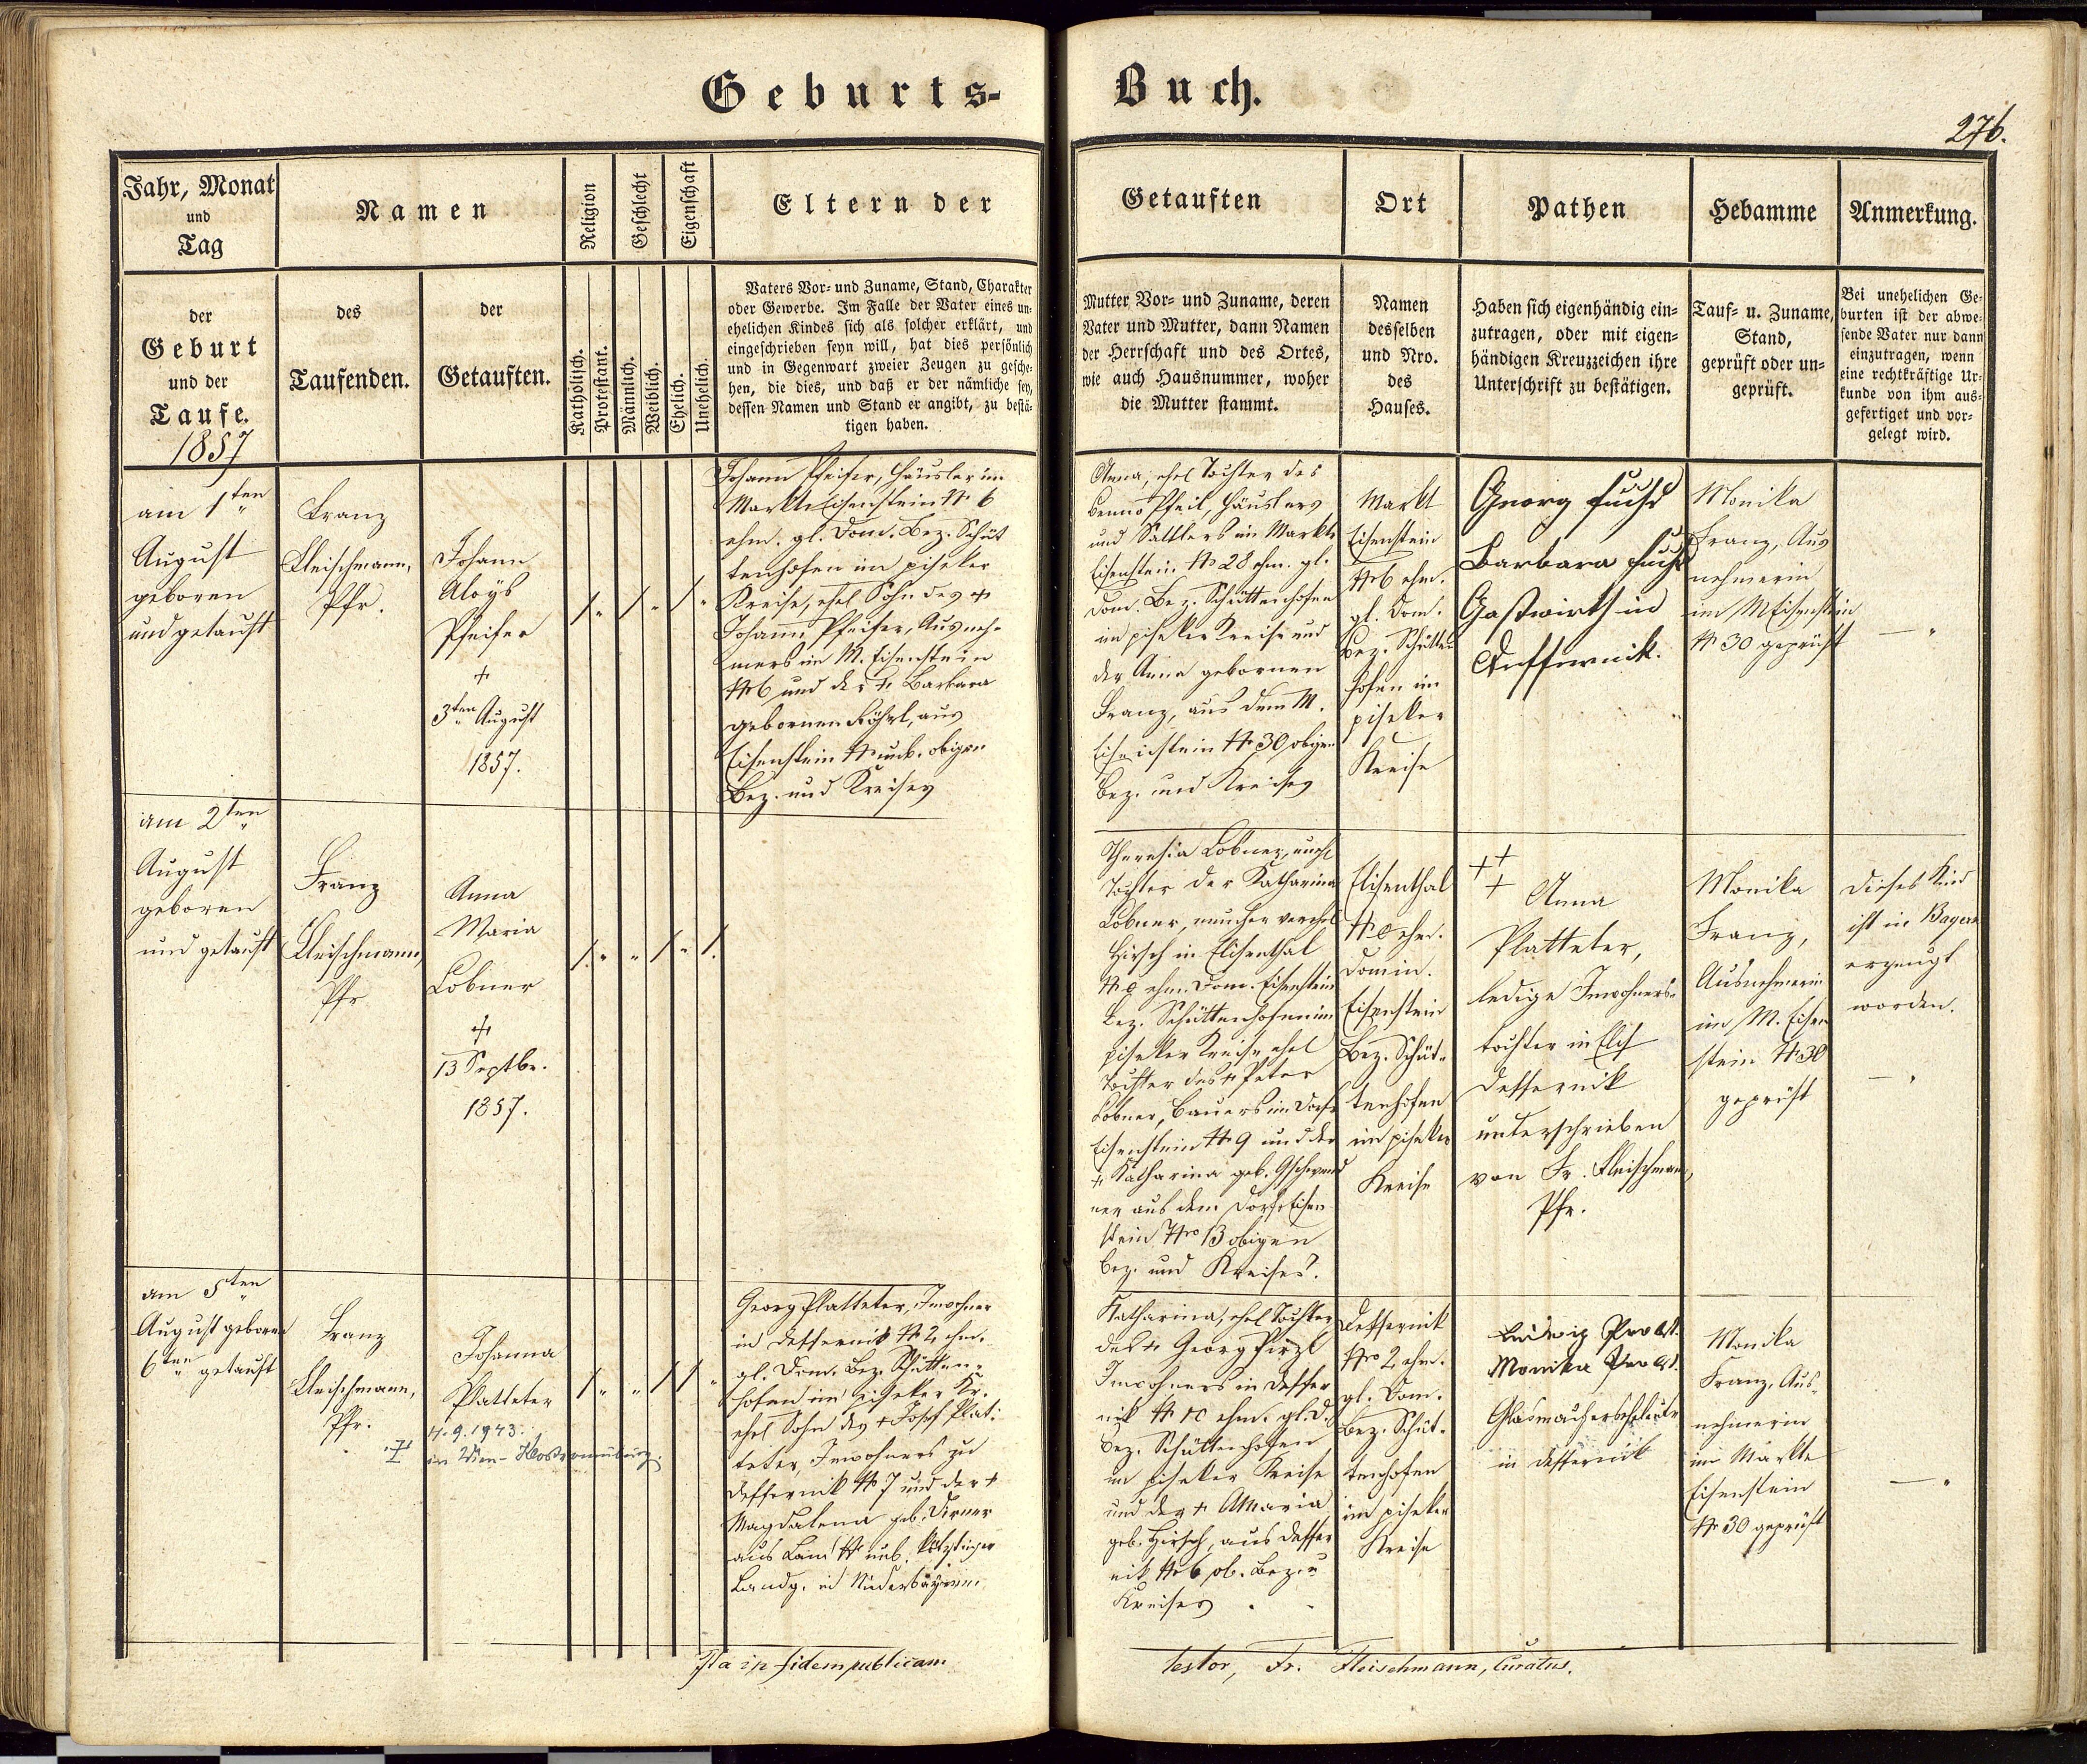 Geburts-
Buch.
276.
Jahr, Monat
und
Tag
der
Geburt
und der
Taufe.
1857
Namen
des
Taufenden.
der
Getauften.
Religion
Katholisch.
Protestant.
Geschlecht
Männlich.
Weiblich.
Eigenschaft
Ehelich.
Unehelich.
Eltern der
Vaters Vor- und Zuname, Stand, Charakter
oder Gewerbe. Im Falle der Vater eines un-
ehelichen Kindes sich als solcher erklärt, und
eingeschrieben seyn will, hat dies persönlich
und in Gegenwart zweier Zeugen zu gesche-
hen, die dies, und daß er der nämliche sey,
dessen Namen und Stand er angibt, zu bestä-
tigen haben.
Getauften
Mutter Vor- und Zuname, deren
Vater und Mutter, dann Namen
der Herrschaft und des Ortes,
wie auch Hausnummer, woher
die Mutter stammt.
Ort
Namen
desselben
und Nro.
des
Hauses.
Pathen
Haben sich eigenhändig ein-
zutragen, oder mit eigen-
händigen Kreuzzeichen ihre
Unterschrift zu bestätigen.
Hebamme
Tauf- u. Zuname,
Stand,
geprüft oder un-
geprüft.
Anmerkung.
Bei unehelichen Ge-
burten ist der abwe-
sende Vater nur dann
einzutragen, wenn
eine rechtkräftige Ur-
kunde von ihm aus-
gefertiget und vor-
gelegt wird.
am 1ten
August
geboren
und getauft
Franz
Fleischmann,
Pfr.
Johann
Aloÿs
Pfeifer
+
3ten August
1857.
Johann Pfeifer, Häusler im
Markte Eisenstein N 6
ehm. gl. Dom. Bez. Schüt
tenhofen im piseker
Kreise, ehel Sohn des +
Johann Pfeifer, Ausneh-
mers im M. Eisenstein
N 6 und der + Barbara
gebornen Röhrl, aus
Eisenstein N unb. obigen
Bez. und Kreises
Anna, ehel Tochter des
Benno Pfeil, Häuslers
und Sattlers im Markte
Eisenstein N 28 ehm. gl.
Dom. Bez. Schüttenhofen
im piseker Kreise und
der Anna gebornen
Franz, aus dem M.
Eisenstein N 30 obigen
Bez. und Kreises
Markt
Eisenstein
N 6 ehm.
gl. Dom.
Bez. Schütten
hofen im
piseker
Kreise
Georg Fuchs
Barbara Fuchs
Gastwirth in
Deffernik.
Monika
Franz, Aus
nehmerin
im M Eisenstein
N 30 geprüft
am 2ten
August
geboren
und getauft
Franz
Fleischmann,
Pfr
Anna
Maria
Lobner
+
13 Septbr.
1857.
Theresia Lobner, unehl
Tochter der Katharina
Lobner, nunher verehel
Hirsch in Elisenthal
ehm. Dom. Eisenstein
Bez. Schüttenhofen im
piseker Kreise, ehel
Tochter des + Peter
Lobner, Bauers im Dorfe
Eisenstein N 9 und der
+ Katharina geb. Gschwend
ner aus dem Dorfe Eisen
stein Nro 13 obigen
Bez. und Kreises.
Elisenthal
ehm.
Domin.
Eisenstein
Bez. Schüt-
tenhofen
im piseker
Kreise
+ + +
Anna
Platteter,
ledige Inwohners-
tochter in
Deffernik
unterschrieben
von Fr. Fleischmann,
Pfr.
Monika
Franz,
Ausnehmerin
im M. Eisen
stein N 30
geprüft
Dieses Kind
ist in Bayern
erzeugt
worden.
am 5ten
August geboren
6ten getauft
Franz
Fleischmann,
Pfr.
Johanna
Platteter
4.9.1943.
in Wien-Klosterneuburg.
Georg Platteter, Inwohner
in Deffernik N 2 ehm.
gl. Dom. Bez. Schütten-
hofen im piseker Kr.
ehel Sohn des + Josef Plat-
teter, Inwohners zu
Deffernik N 7 und der +
Magdalena geb.
aus Lam N unb. Kötztinger
Landg. in Niederbayern.
Katharina, ehel Tochter
des + Georg Pirzl
Inwohners in Deffer
nik N 10 ehm. gl. D.
Bez. Schüttenhofen
im piseker Kreise
und der + AMaria
geb. Hirsch, aus Deffer
nik N 6 ob. Bez. u
Kreises
Deffernik
Nro 2 ehm.
gl. Dom.
Bez. Schüt-
tenhofen
im piseker
Kreise
Ludwig Probst.
Monika Probst.
Glasmacherseheleute
in Deffernik
Monika
Franz, Aus-
nehmerin
im Markte
Eisenstein
N 30 geprüft
Ita in fidem publicam
testor, Fr. Fleischmann, Curatus.